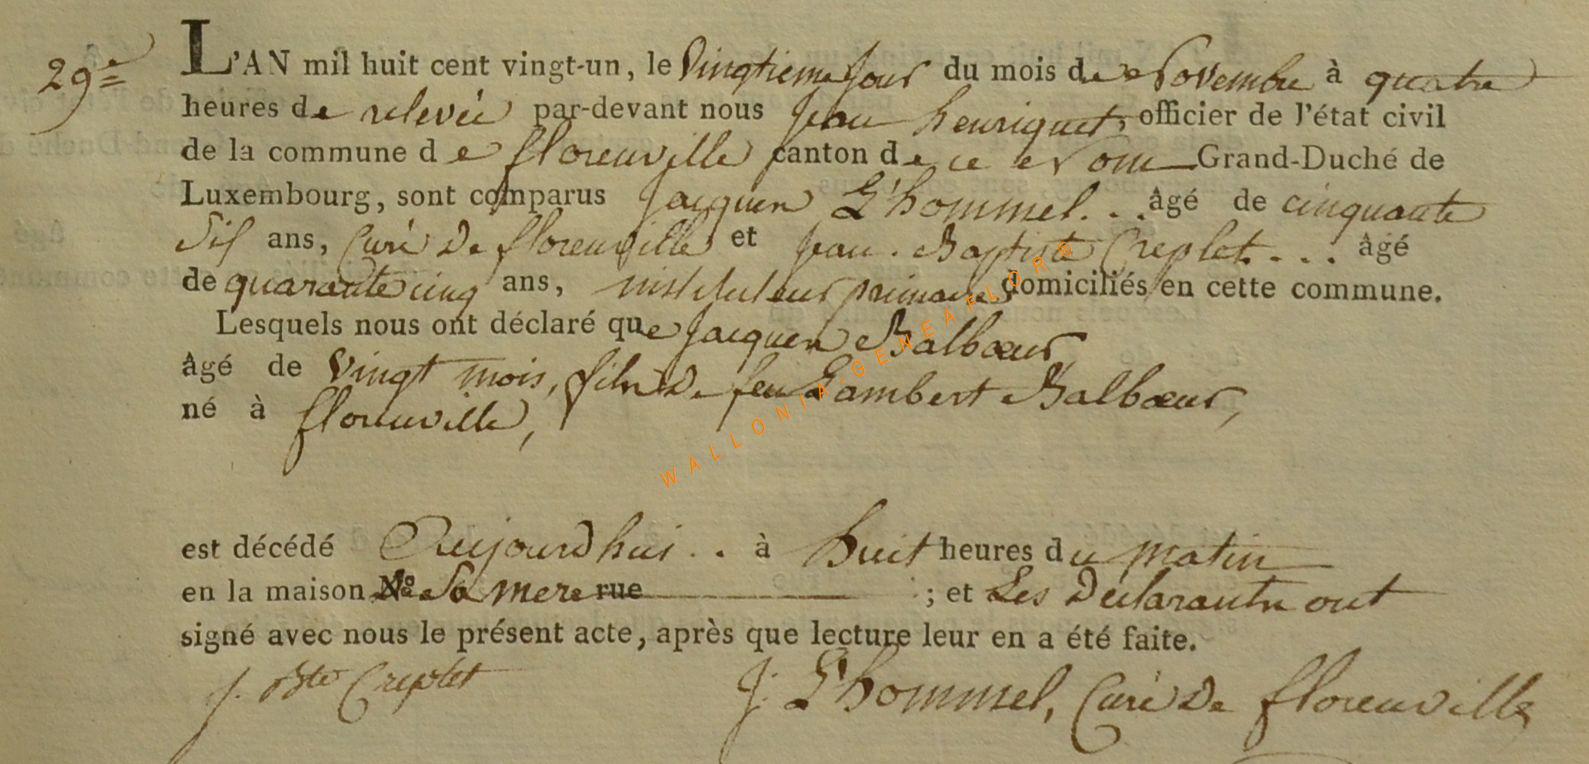 29e
L'AN mil huit cent vingt-un, le Vingtieme Jour du mois de Novembre à quatre
heures de relevée par-devant nous Jean henriquet, officier de l'état civil
de la commune de florenville canton de ce Nom Grand-Duché de
Luxembourg, sont comparus Jacques L'hommel... âgé de cinquante
Six ans, Curé De florenville et Jean Baptiste Creplet... âgé
de quarante cinq ans, instituteur primaire domiciliés en cette commune.
Lesquels nous ont déclaré que Jacques Balbœur
âgé de Vingt mois, fils De feu Lambert Balbœur,
né à florenville,
est décédé Aujourdhui.. à huit heures du matin
en la maison de Sa mere rue ; et Les Déclarants ont
signé avec nous le présent acte, après que lecture leur en a été faite.
J. Bte Creplet J: L'hommel, Curé De florenville
WALLONIA GENEAFLORE